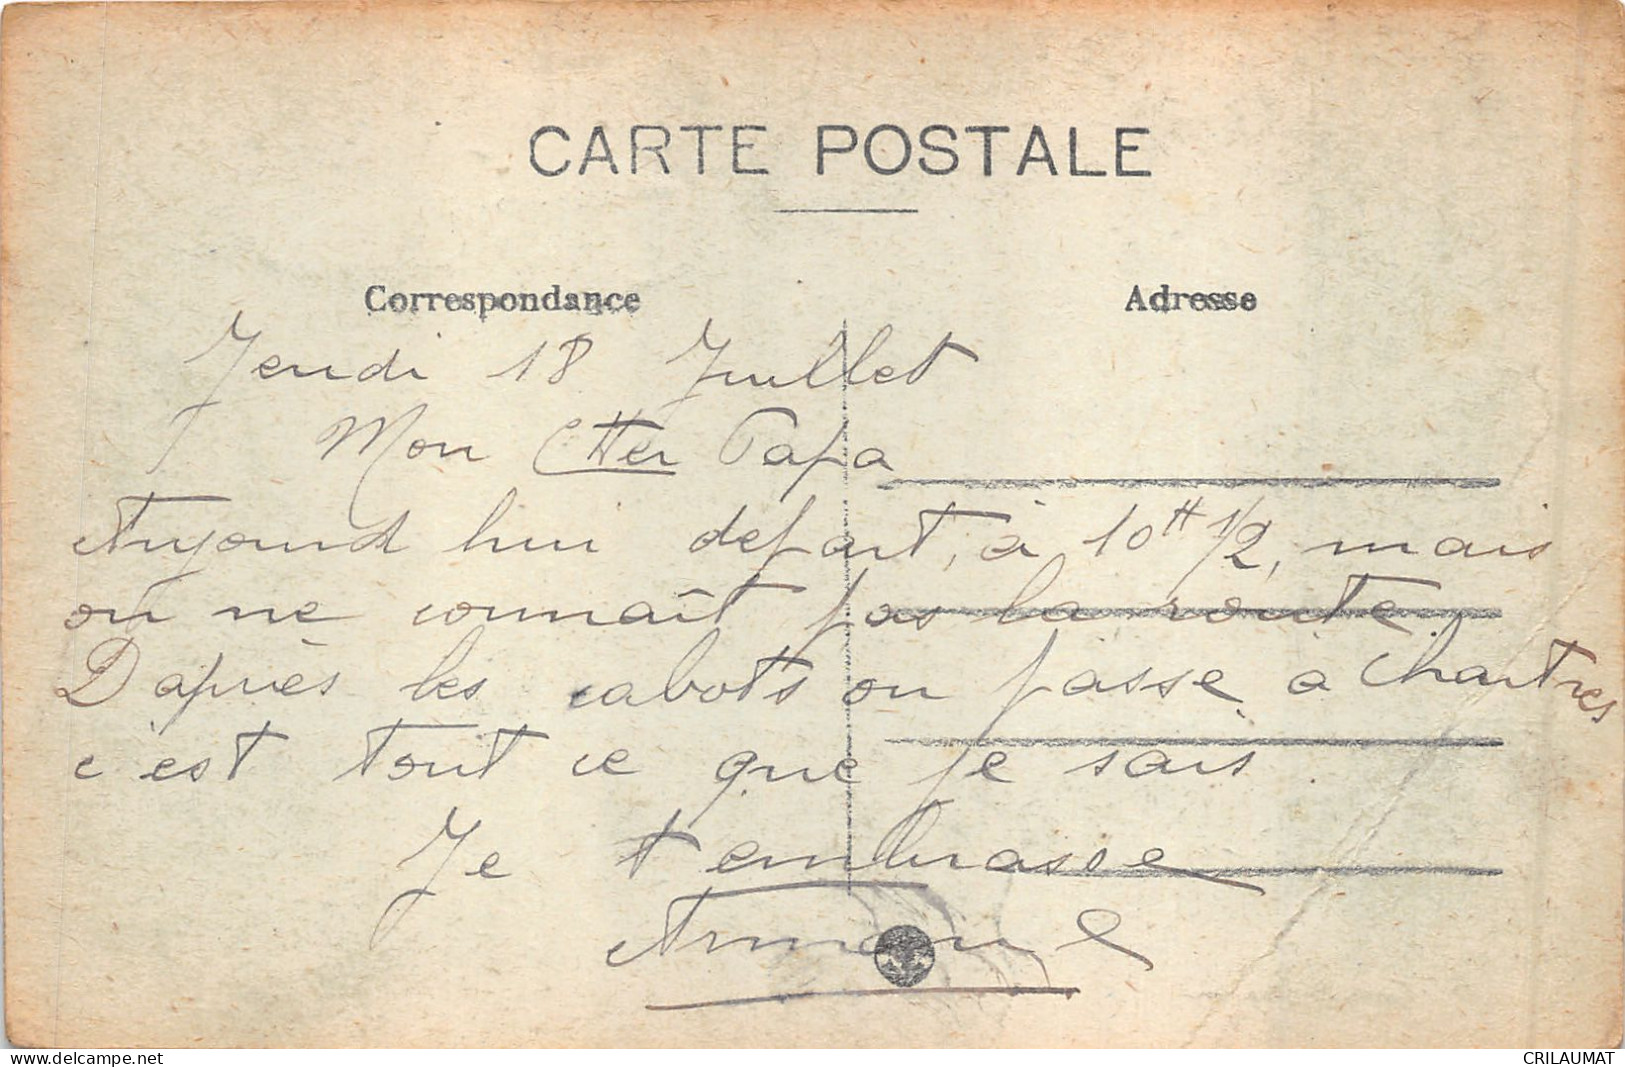 CARTE POSTALE
Correspondance Adresse
Jeudi 18 Juillet
Mon CHer Papa
Aujourd hui depart, à 10H 1/2, mais
on ne connaît pas la route.
D'après les cabots on passe a Chartres
c'est tout ce que je sais.
Je t'embrasse
delcampe.net
CRILAUMAT